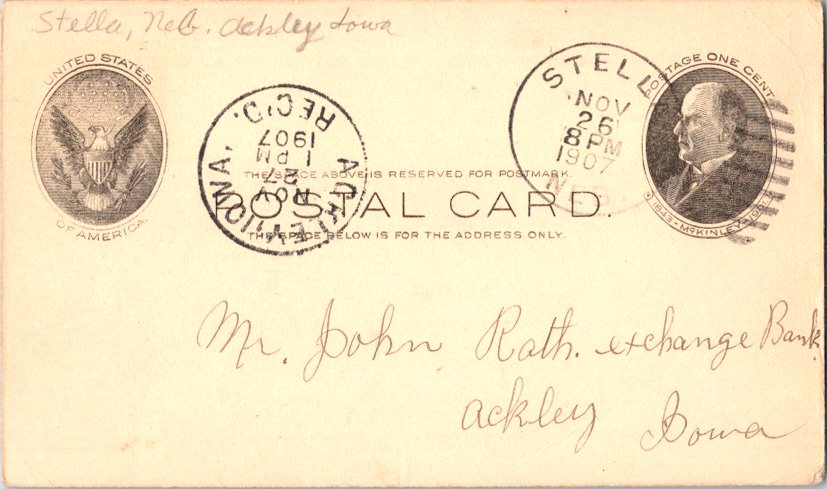 Stella, Neb. Ackley Iowa
UNITED STATES
OF AMERICA.
ACKLEY, IOWA,
NOV
27
1 PM
1907
REC'D.
STELL
NOV
26
8 PM
1907
NEB.
POSTAGE ONE CENT
1843-McKINLEY-1901
THE SPACE ABOVE IS RESERVED FOR POSTMARK.
POSTAL CARD.
THE SPACE BELOW IS FOR THE ADDRESS ONLY.
Mr. John Rath. exchange Bank.
Ackley Iowa